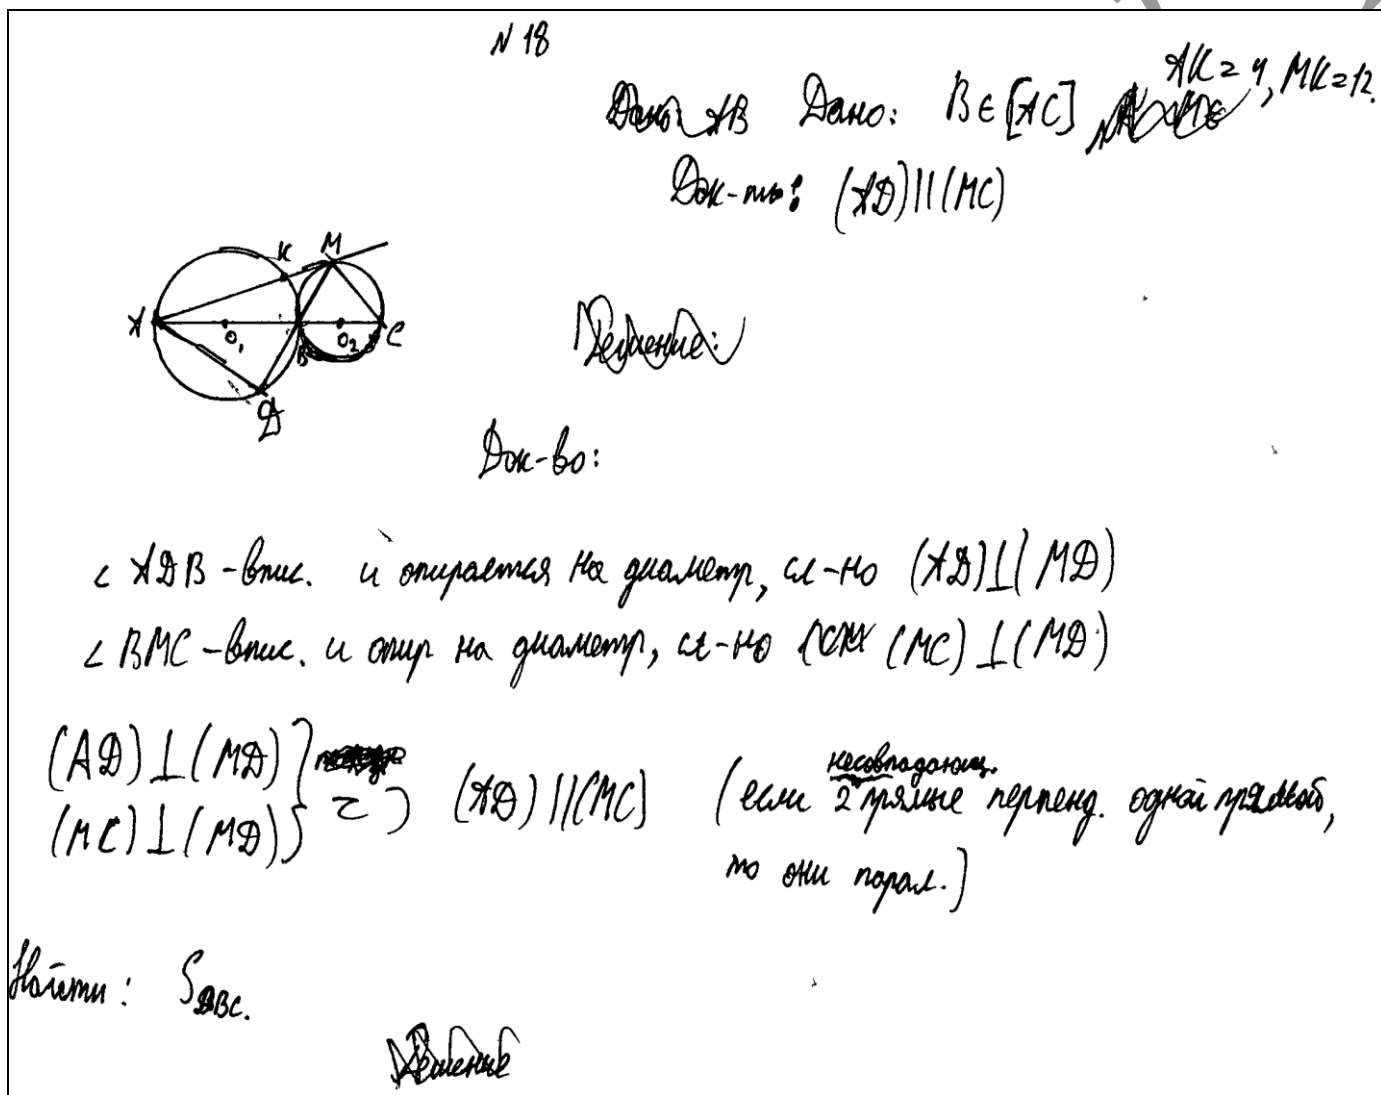 N 18
AK = 4, MK = 12.
Дано: AB Дано: B ∈ [AC]
Док-ть: (AД) || (MC)
K M
A O₁ B O₂ C
Д
Решение:
Док-во:
∠ AДB - впис. и опирается на диаметр, сл-но (AД) ⊥ (MД)
∠ BMC - впис. и опир на диаметр, сл-но (MC) ⊥ (MД)
(AД) ⊥ (MД)
(MC) ⊥ (MД) } => (AД) || (MC) (если 2 несовпадающ. прямые перпенд. одной прямой,
то они парал.)
Найти: S ДBC.
Решение